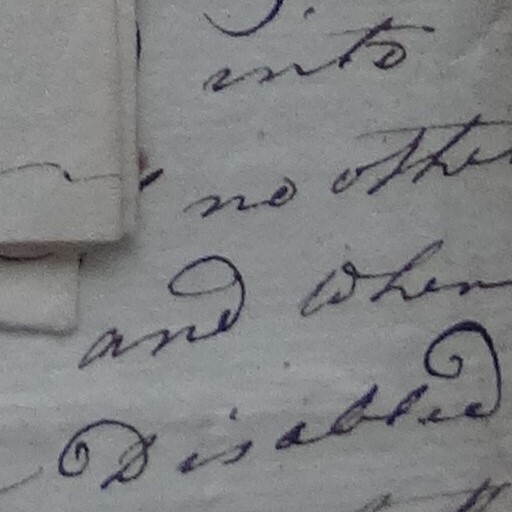 into
no other
and when
Disabled